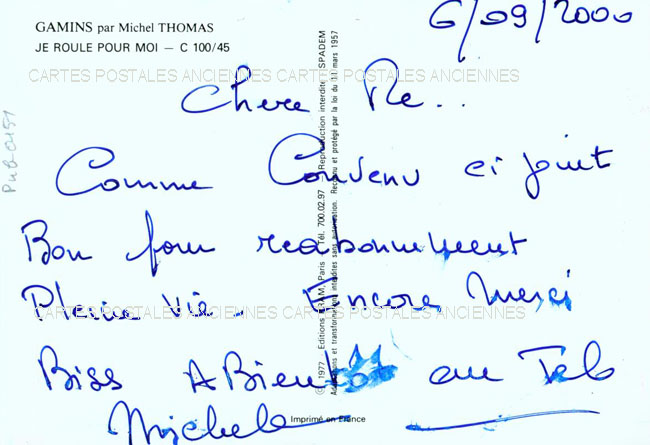 GAMINS par Michel THOMAS
JE ROULE POUR MOI — C 100/45
6/09/2000
CARTES POSTALES ANCIENNES CARTES POSTALES ANCIENNES
Chere Me..
Comme Convenu ci joint
Bon pour reabonnement
Pleine Vie. Encore Merci
CARTES POSTALES ANCIENNES CARTES POSTALES ANCIENNES
Biss A Bientot au Tel
Michele
Imprimé en France
© 1977 — Editions KRAM, Paris — Tél. 700.02.97 / Reproduction interdite SPADEM
Adaptations et transformations interdites sans autorisation. Reconnu et protégé par la loi du 11 mars 1957
Pub-0151